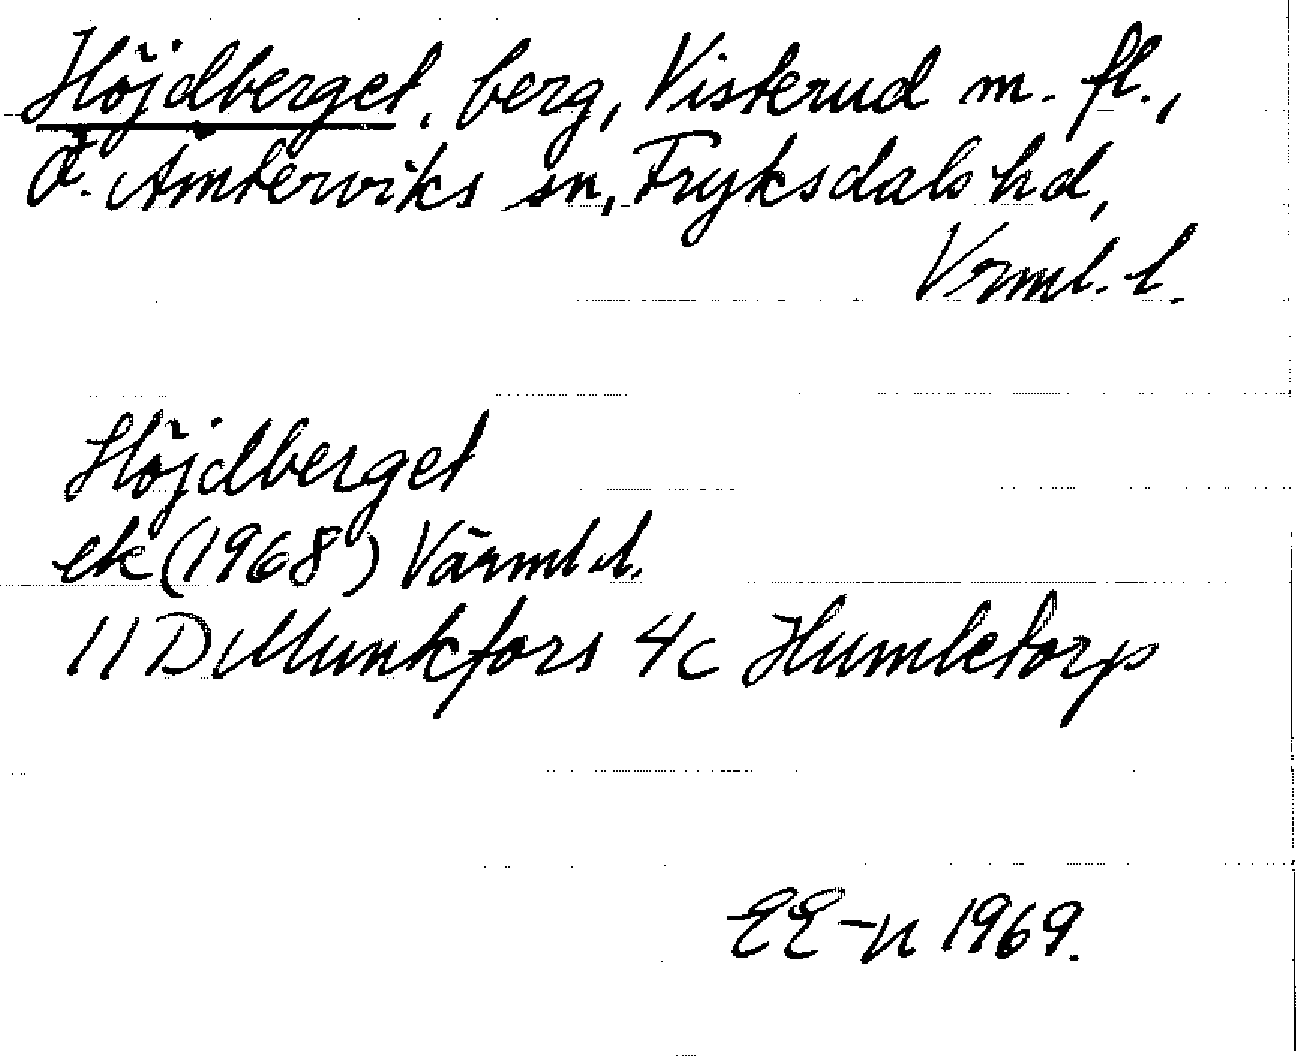 Höjdberget, berg, Visterud m. fl.,
Ö. Ämterviks sn, Fryksdals hd,
Vrml. l.
Höjdberget
ek (1968) Värml. l.
11 D Munkfors 4c Humletorp
EE-n 1969.